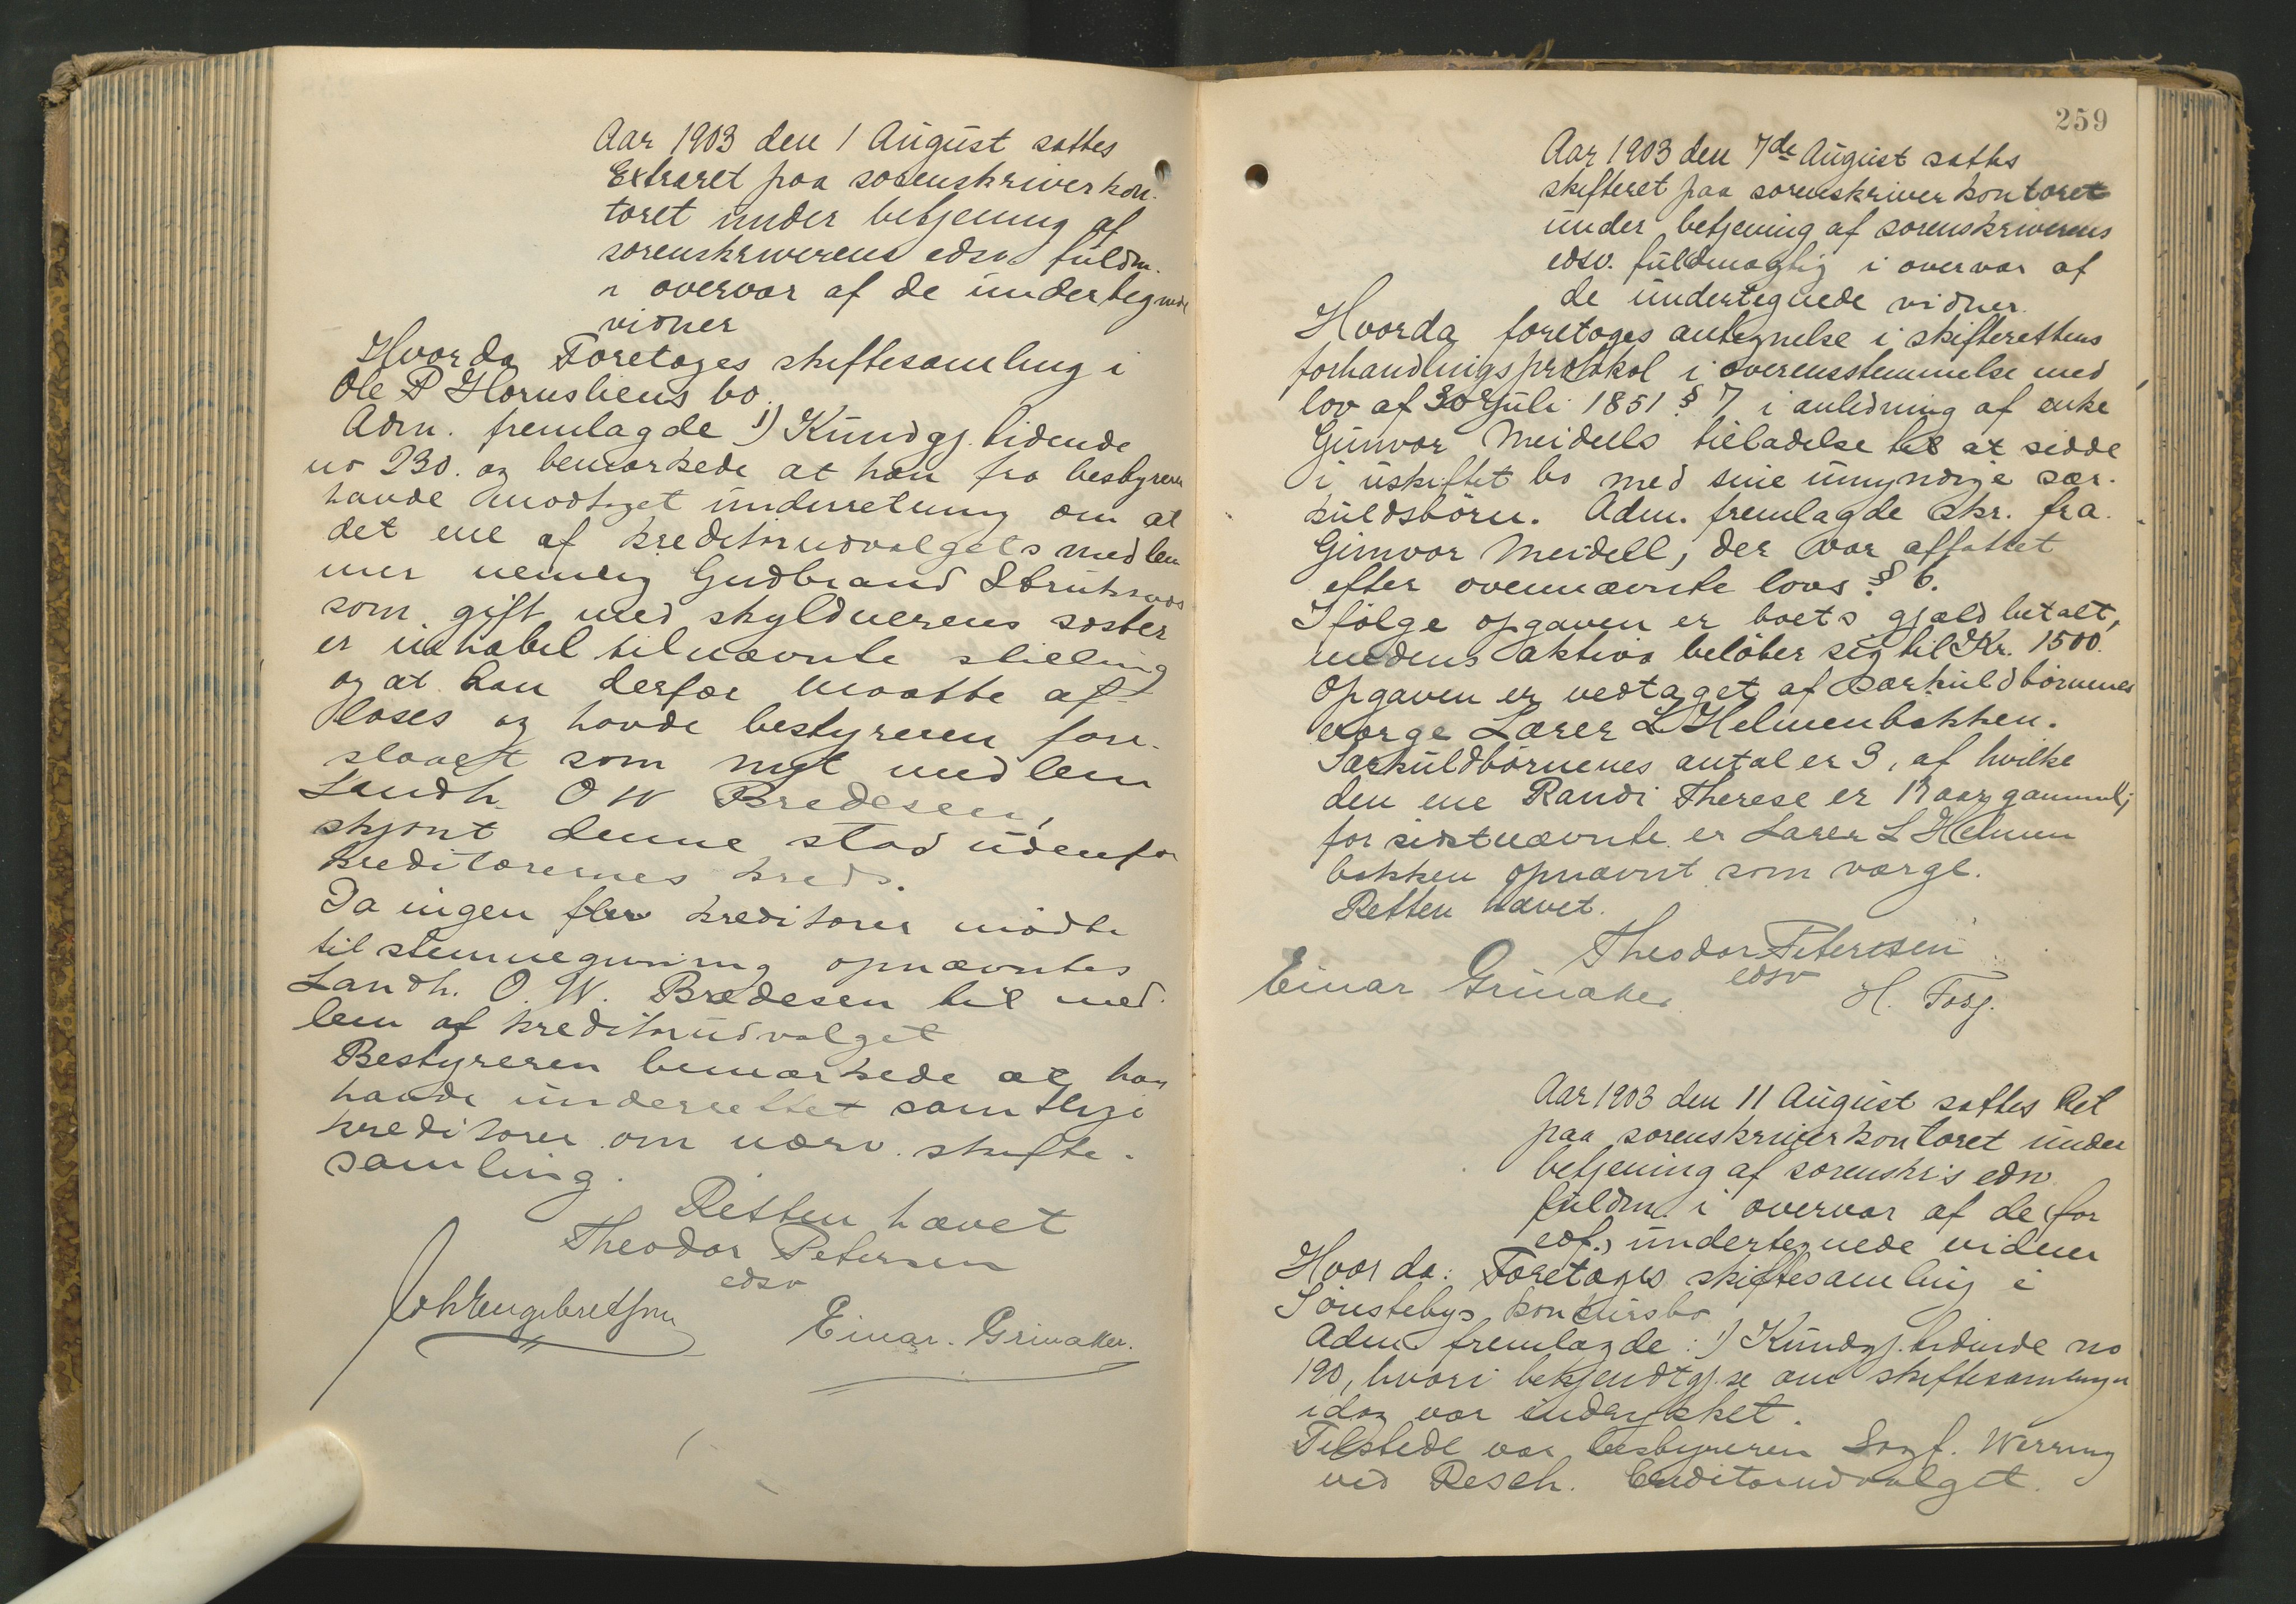 Aar 1903 den 1 August sattes
Extraret paa sorenskriverkon-
toret under betjening af
sorenskriverens edsv. fuldm.
i overvær af de undertegnede
vidner
Hvorda Foretoges skiftesamling i
Ole P Hornsliens bo.
Adm. fremlagde 1) Kundgj. tidende
no 230. og bemærkede at han fra bestyreren
havde modtaget underretning om at
det ene af kreditorudvalgets medlem
mer nemlig Gudbrand
som gift med skyldnerens søster
er inhabel til nævnte stilling
og at han derfor maatte af-
løses og havde bestyreren fore-
slaaet som nyt medlem
Landh. O W Bredesen,
skjønt denne stod udenfor
kreditorernes kreds.
Da ingen flere kreditorer mødte
til stemmegivning opnævntes
Landh. O. W. Bredesen til med-
lem af kreditorudvalget
Bestyreren bemærkede at han
havde underrettet samtlige
kreditorer om nærv. skifte-
samling.
Retten hævet
Theodor Petersen
edsv
Joh Engebretsen
Einar Grinaker.
259
Aar 1903 den 7de August sattes
skifteret paa sorenskriverkontoret
under betjening af sorenskriverens
edsv. fuldmægtig i overvær af
de undertegnede vidner.
Hvorda foretoges antegnelse i skifterettens
forhandlingsprotokol i overensstemmelse med
lov af 30 Juli 1851 § 7 i anledning af enke
Gunvor Meidells tilladelse til at sidde
i uskiftet bo med sine umyndige sær-
kuldsbörn. Adm. fremlagde skr. fra
Gunvor Meidell, der var affattet
efter ovennævnte lovs § 6.
Ifølge opgaven er boets gjæld betalt,
medens aktiva belöber sig til Kr. 1500.
Opgaven er vedtaget af særkuldbörnenes
værge Lærer L Helmenbakken.
Særkuldbørnenes antal er 3, af hvilke
den ene Randi Therese er aar gammel;
for sidstnævnte er Lærer L Helmen
bakken opnævnt som værge.
Retten hævet.
Theodor Petersen
edsv
Einar Grinaker
H. Fosj.
Aar 1903 den 11 August sattes Ret
paa sorenskriverkontoret under
betjening af sorenskr's edsv.
fuldm. i overvær af de (for
edf.) undertegnede vidner
Hvorda: Foretoges skiftesamling i
Sönstebys konkursbo
Adm fremlagde: 1) Kundgj. tidende no
190, hvori bekjendtgj.se om skiftesamlingen
idag var indrykket.
Tilstede var bestyreren Sagf. Wirring
ved Resch. Creditorudvalget.